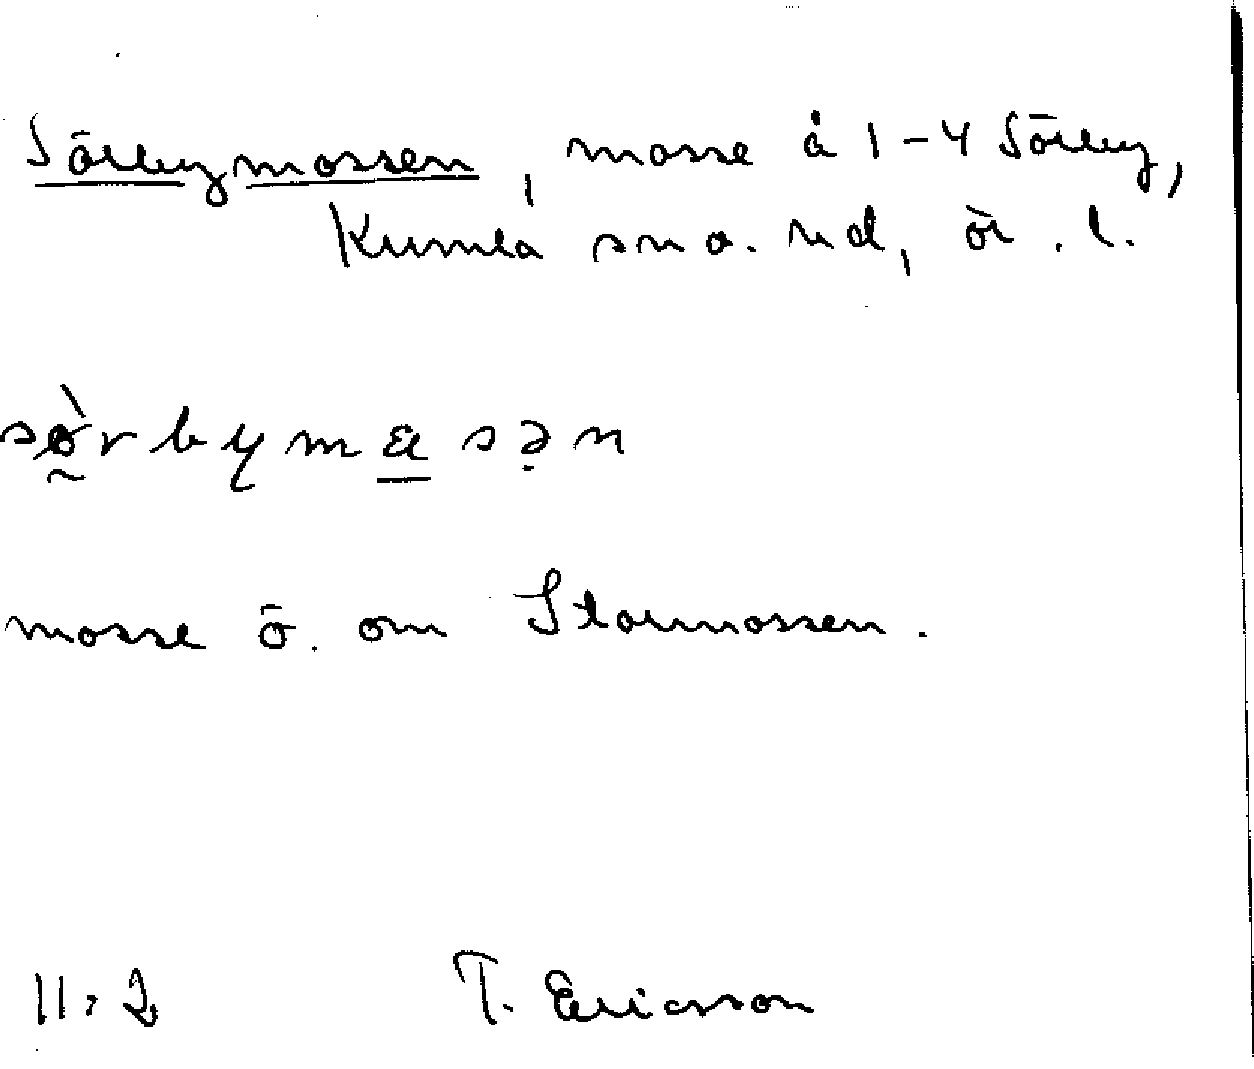 Sörbymossen, mosse å 1-4 Sörby,
Kumla sn o. hd, ör. l.
sö̀rbymαsən
mosse ö. om Stormossen.
11:2 T. Ericsson